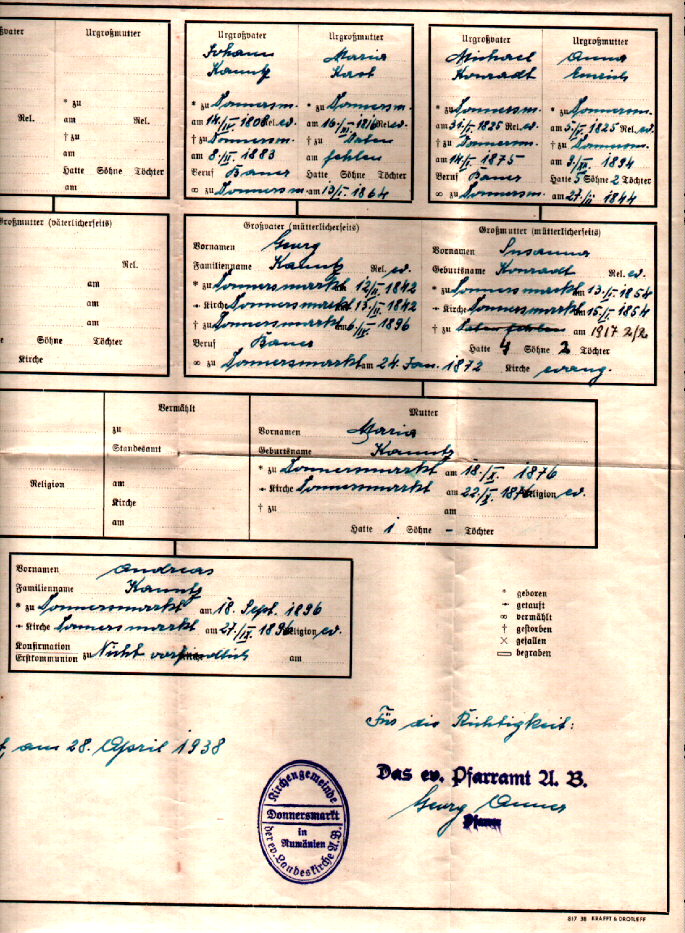 Urgroßmutter
* zu
am Rel.
† zu
am
Hatte Söhne Töchter
am
Rel.
Urgroßvater Urgroßmutter
Johann Maria
Kauntz Kast
* zu Donnersm. * zu Donnersm.
Rel. ev. Rel. ev.
† zu Donnersm. † zu Daten
am 8./IV. 1883 am fehlen
Beruf Bauer Hatte Söhne Töchter
∞ zu Donnersm. am 13/I. 1864
Urgroßvater Urgroßmutter
Michael Anna
Konradt Emrich
* zu Donnersm. * zu Donnersm.
am 31/I. 1825 Rel. ev. am 1825 Rel. ev.
† zu Donnersm. † zu Donnersm.
am 14/I. 1875 am 1894
Beruf Bauer Hatte 5 Söhne 2 Töchter
∞ zu Donnersm. am 27./II 1844
Großmutter (väterlicherseits)
Rel.
am
am
am
Söhne Töchter
Kirche
Großvater (mütterlicherseits)
Vornamen Georg
Familienname Kauntz Rel. ev.
* zu Donnersmarkt am 12/II. 1842
Kirche Donnersmarkt 13/II. 1842
† zu Donnersmarkt am 6/IV. 1896
Beruf Bauer
∞ zu Donnersmarkt am 24. Jan. 1872
Großmutter (mütterlicherseits)
Vornamen Susanna
Geburtsname Konradt Rel. ev.
* zu Donnersmarkt am 13./I. 1854
Kirche Donnersmarkt am 15/I. 1854
† zu Daten fehlen am 1917 2/2
Hatte 4 Söhne 2 Töchter
Kirche evang.
Vermählt
zu
Standesamt
Religion am
Kirche
am
Mutter
Vornamen Maria
Geburtsname Kauntz
* zu Donnersmarkt am 18./X. 1876
Kirche Donnersmarkt am 22./X. 1876 Religion ev.
† zu am
Hatte 1 Söhne – Töchter
Vornamen Andreas
Familienname Kauntz
* zu Donnersmarkt am 18. Sept. 1896
Kirche Donnersmarkt am 27./IX. 1896 Religion ev.
Konfirmation
Erstkommunion zu Nicht vorfindlich am
* geboren
getauft
∞ vermählt
† gestorben
× gefallen
▭ begraben
am 28. April 1938
Für die Richtigkeit:
Das ev. Pfarramt A. B.
Georg
Pfarrer
Kirchengemeinde
Donnersmarkt
in
Rumänien
der ev. Landeskirche A.B.
817 38 KRAFFT & DROTLEFF